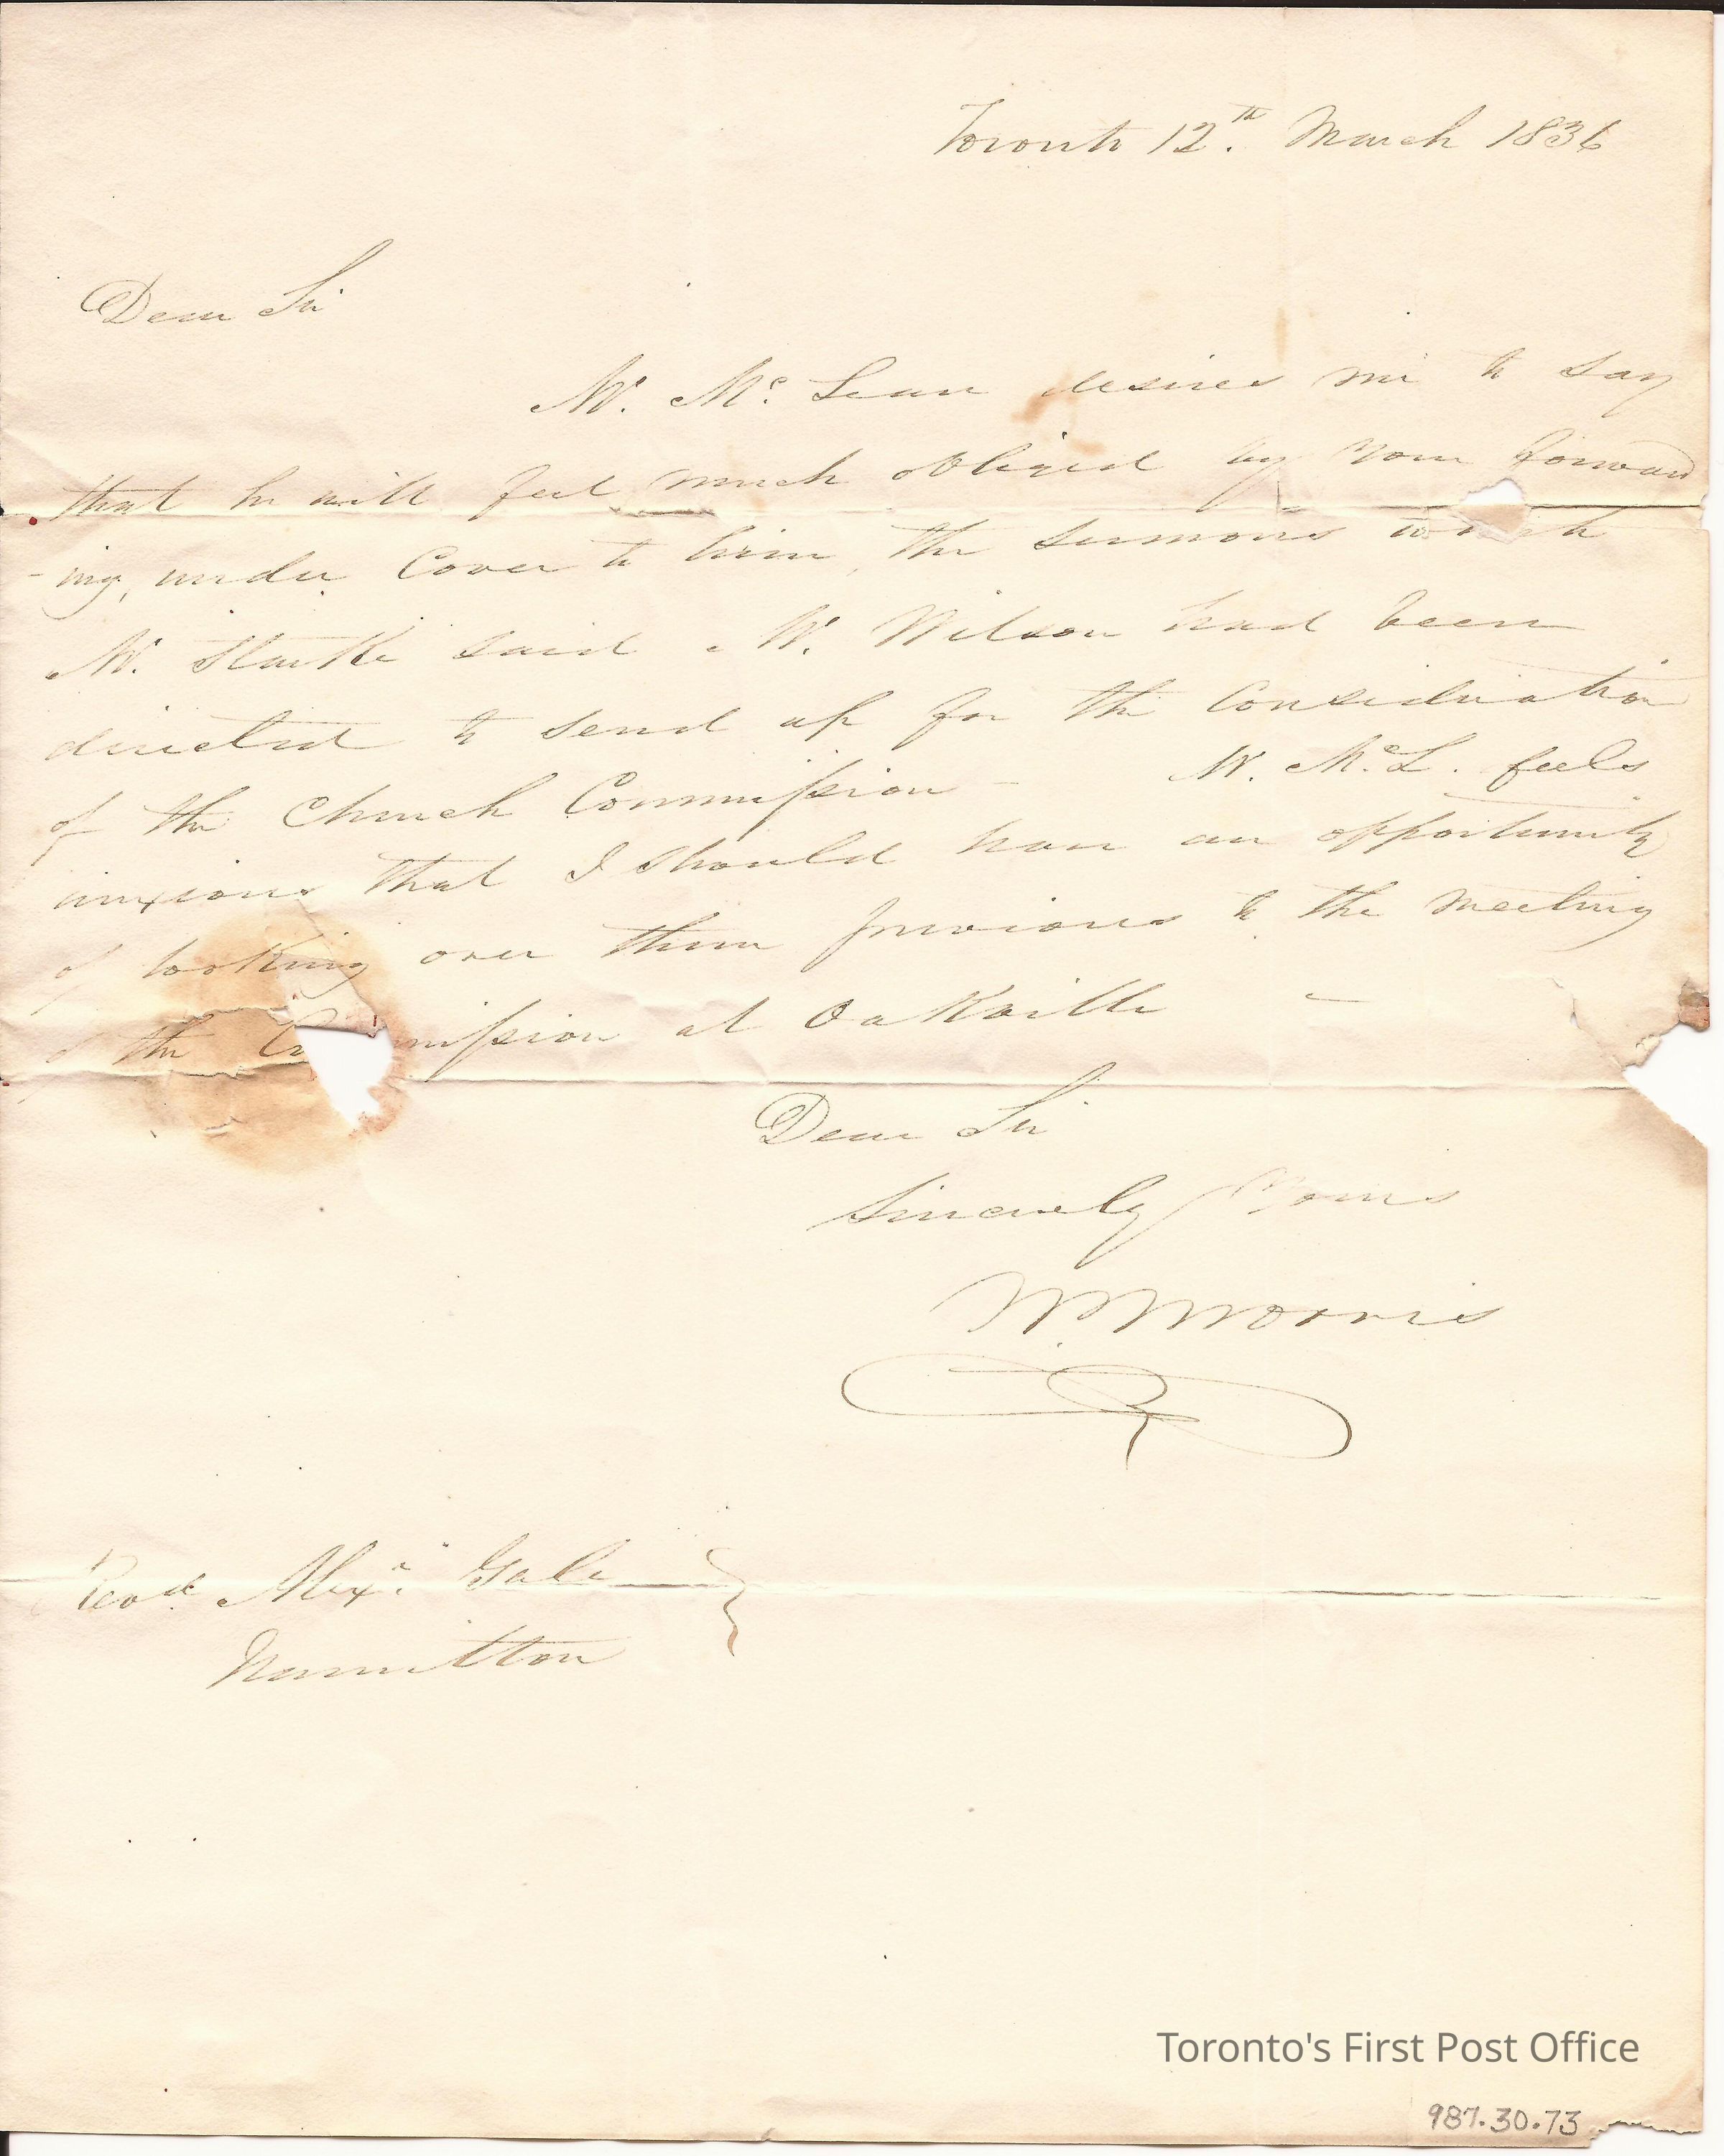 Toronto 12th. March 1836
Dear Sir
Mr. Mc. Lean desires me to say
that he will feel much obliged by your forward
-ing, under Cover to him, the sermons which
Mr. said Mr. Wilson had been
directed to send up for the Consideration
of the Church Commission – Mr. McL. feels
anxious that I should have an opportunity
of looking over them previous to the meeting
of the Commission at Oakville –
Dear Sir
Sincerely Yours
W. Morris
Revd. Alexr. Gale
Hamilton
Toronto's First Post Office
987.30.73